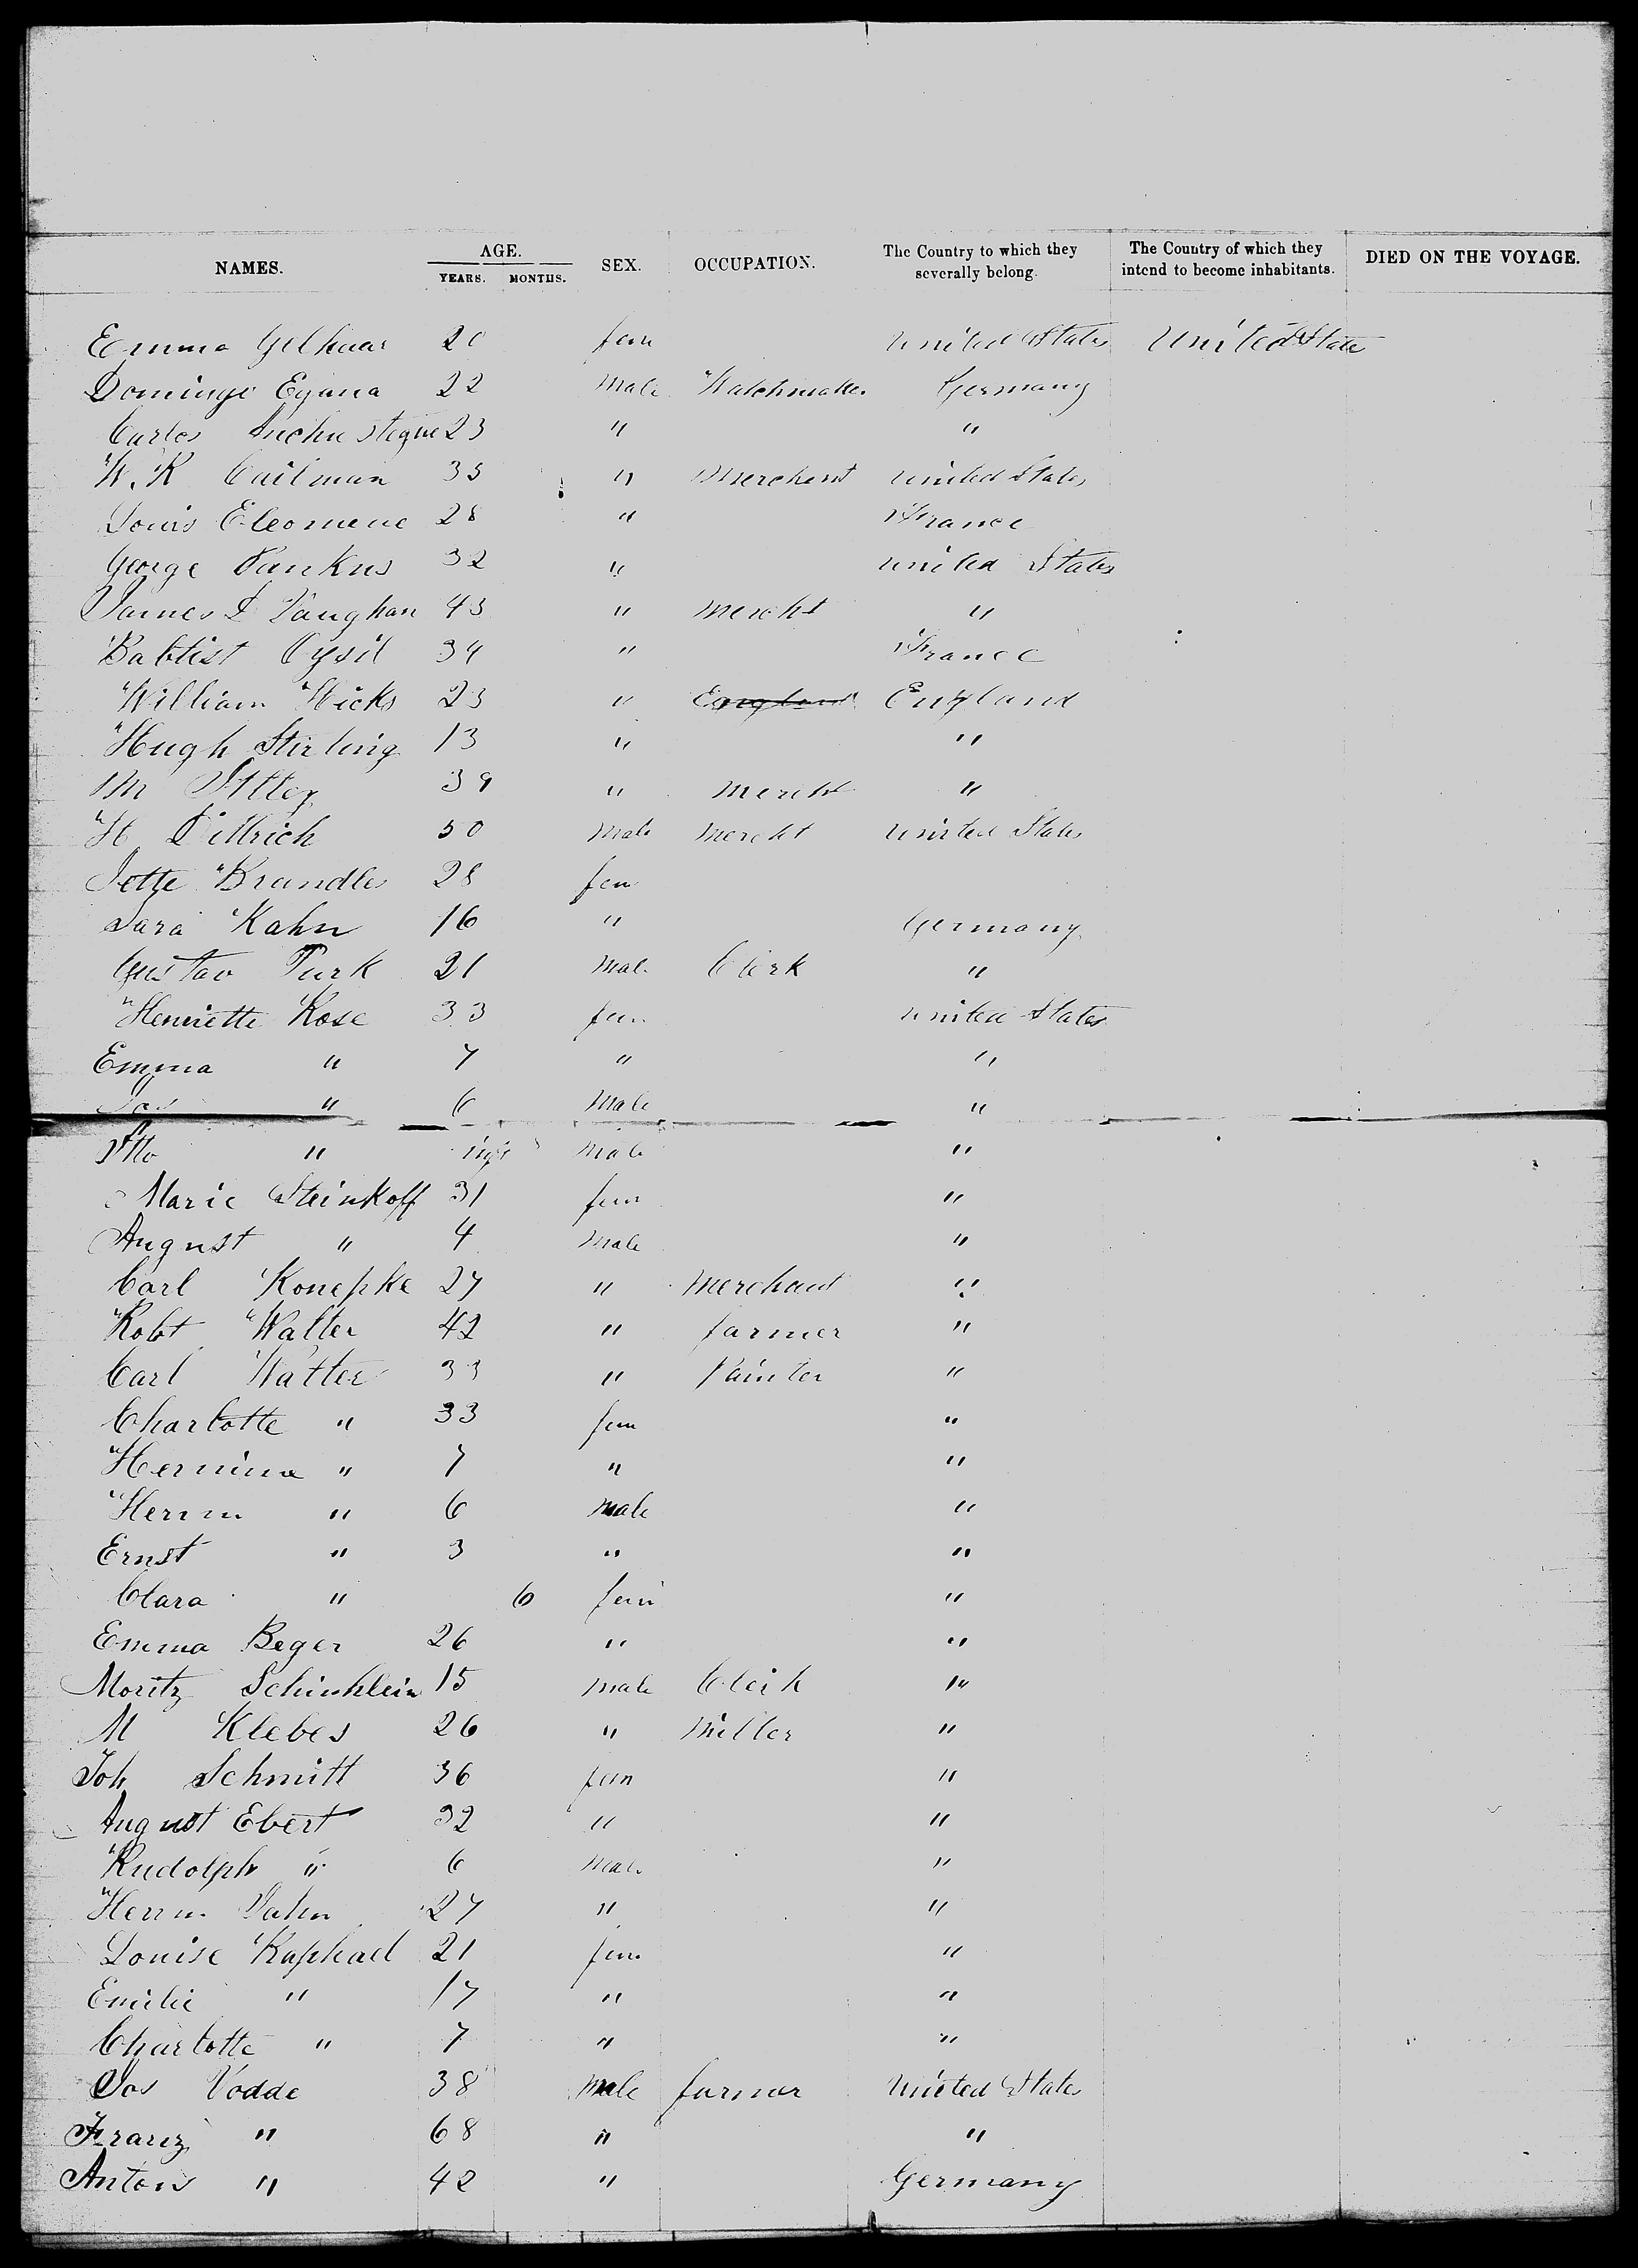 NAMES. AGE. YEARS. MONTHS. SEX. OCCUPATION. The Country to which they severally belong. The Country of which they intend to become inhabitants. DIED ON THE VOYAGE.
Emma Gelhaar 20 fem United States United State
Domingo Egana 22 Male Watchmaker Germany
Carlos 23 " "
W. R Cailman 35 " Merchant United States
Louis Eleomene 28 " France
George Pankus 32 " United States
James L Vaughan 43 " Mercht "
Babtist 34 " France
William Hicks 23 " England England
Hugh Stirling 13 " "
M 39 " Mercht "
H Dittrich 50 Male Mercht United States
Jette Brandles 28 fem
Sara Kahn 16 " Germany
Gustav Turk 21 Male Clerk "
Henriette Rose 33 fem United States
Emma " 7 " "
Jos " 6 Male "
Otto " Male "
Marie Steinkoff 31 fem "
August " 4 Male "
Carl Konepke 27 " Merchant "
Robt Walter 42 " farmer "
Carl Walter 33 " Painter "
Charlotte " 33 fem "
Hermine " 7 " "
Herrm " 6 Male "
Ernst " 3 " "
Clara " 6 fem "
Emma Beger 26 " "
Moritz Schinhlein 15 Male Clerk "
M Klebes 26 " Miller "
Joh Schmitt 36 fem "
August Ebert 32 " "
Rudolph " 6 Male "
Herrm Jahn 27 " "
Louise Raphael 21 fem "
Emilie " 17 " "
Charlotte " 7 " "
Jos Vodde 38 Male farmer United States
Franz " 68 " "
Anton " 42 " Germany